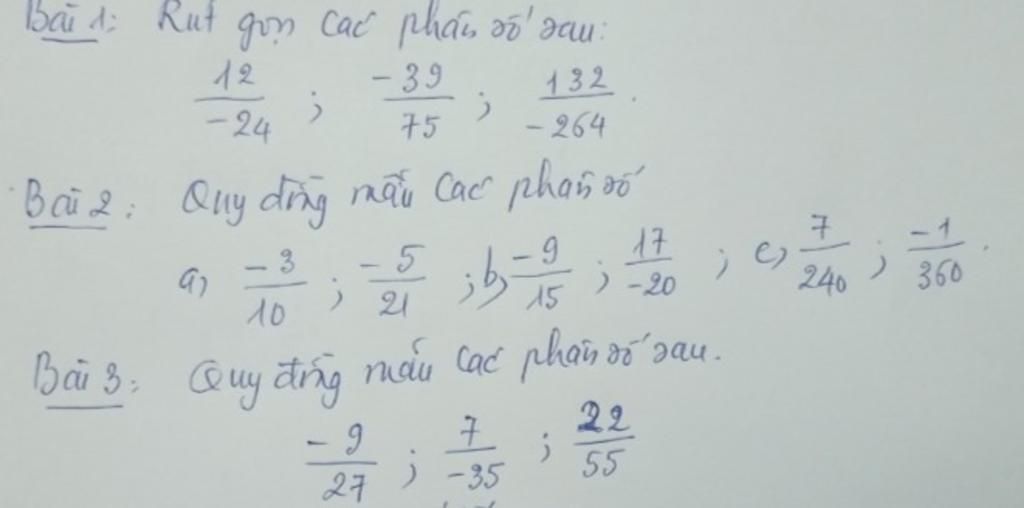 Bài 1: Rút gọn các phân số sau:
12/-24 ; -39/75 ; 132/-264 .
Bài 2: Quy đồng mẫu các phân số
a) -3/10 ; -5/21 ; b) -9/15 ; 17/-20 ; c) 7/240 ; -1/360 .
Bài 3: Quy đồng mẫu các phân số sau.
-9/27 ; 7/-35 ; 22/55